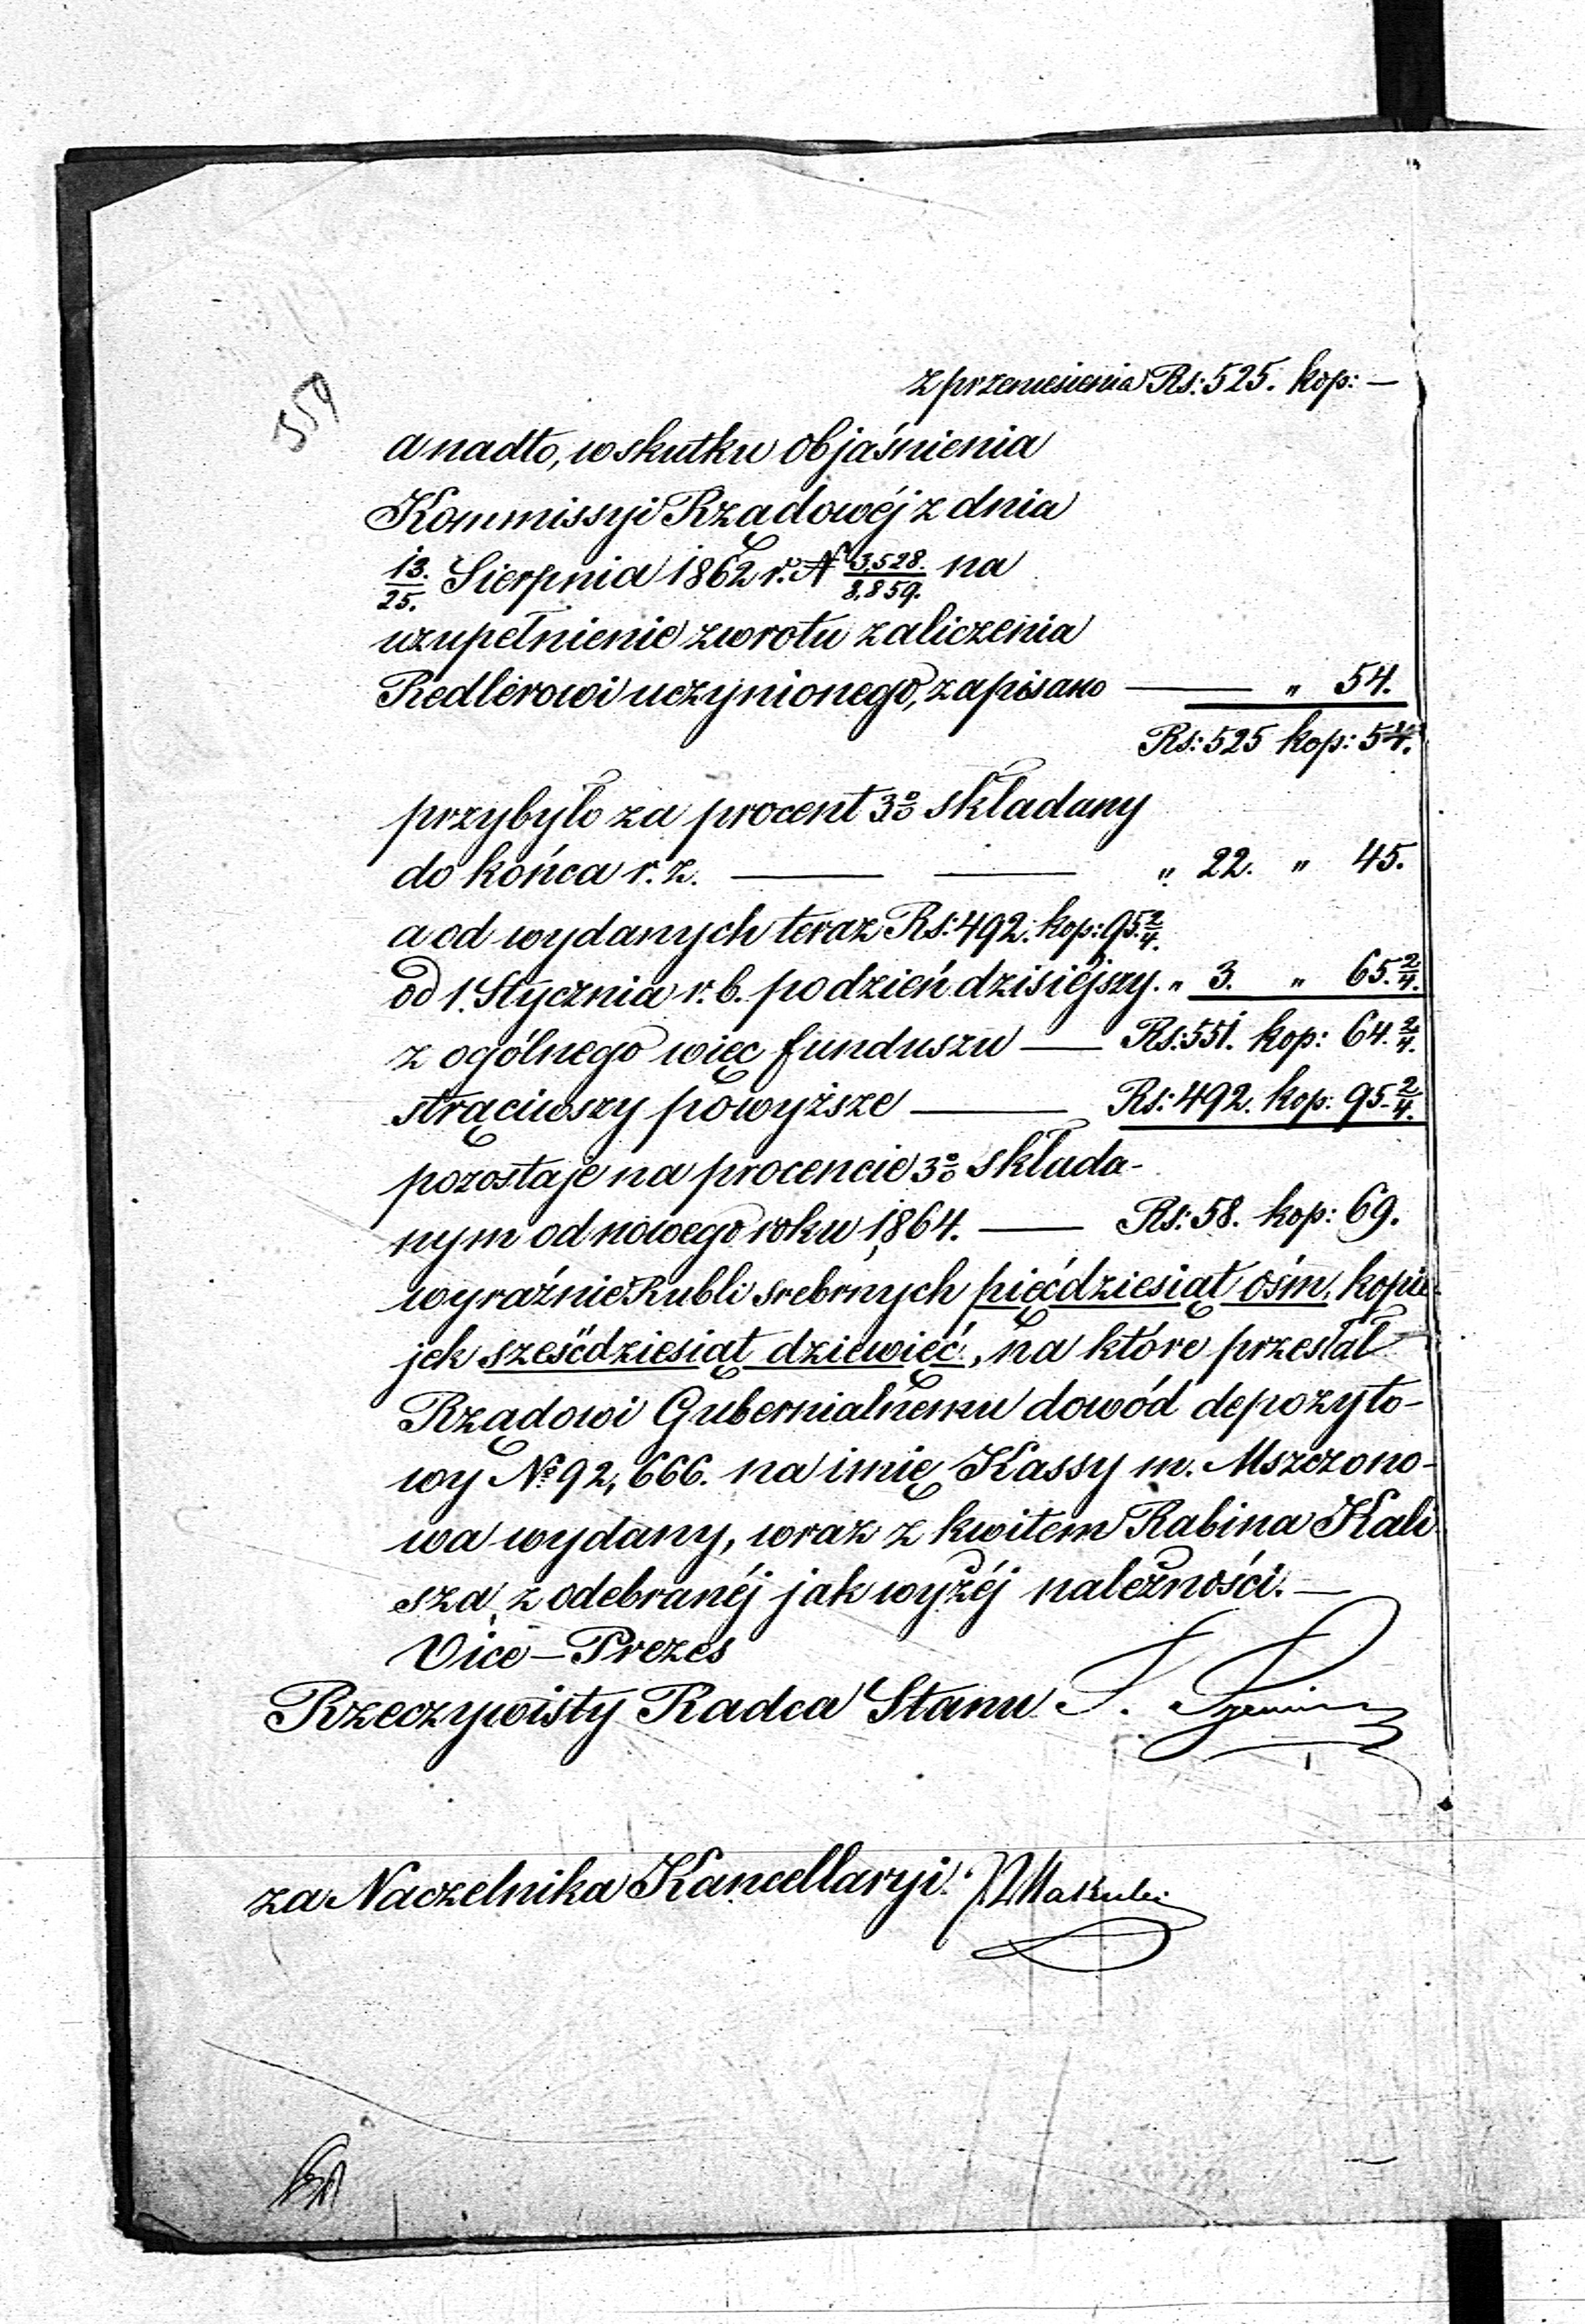 z przeniesienia Rs: 525. kop: —
559
a nadto, w skutku objaśnienia
Kommissyi Rządowéj z dnia
13./25. Sierpnia 1862 r. N 3,528./8,859. na
uzupełnienie zwrotu zaliczenia
Redlerowi uczynionego, zapisano — " 54.
Rs: 525 kop: 54.
przybyło za procent 3% składany
do końca r. z. — — " 22. " 45.
a od wydanych teraz Rs: 492. kop: 95. 2/4.
od 1. Stycznia r. b. po dzień dzisiéjszy. " 3. " 65. 2/4.
z ogólnego więc funduszu — Rs: 551. kop: 64. 2/4.
strąciwszy powyższe — Rs: 492. kop: 95. 2/4.
pozostaje na procencie 3% składa-
nym od nowego roku 1864. — Rs: 58. kop: 69.
wyraźnie Rubli srebrnych pięćdziesiąt ośm, kopie-
jek sześćdziesiąt dziewięć, na które przesłał
Rządowi Gubernialnemu dowód depozyto-
wy No 92,666. na imię Kassy m. Mszczono-
wa wydany, wraz z kwitem Rabina Kali
sza, z odebranéj jak wyżéj należności. —
Vice – Prezes
Rzeczywisty Radca Stanu
za Naczelnika Kancellaryi